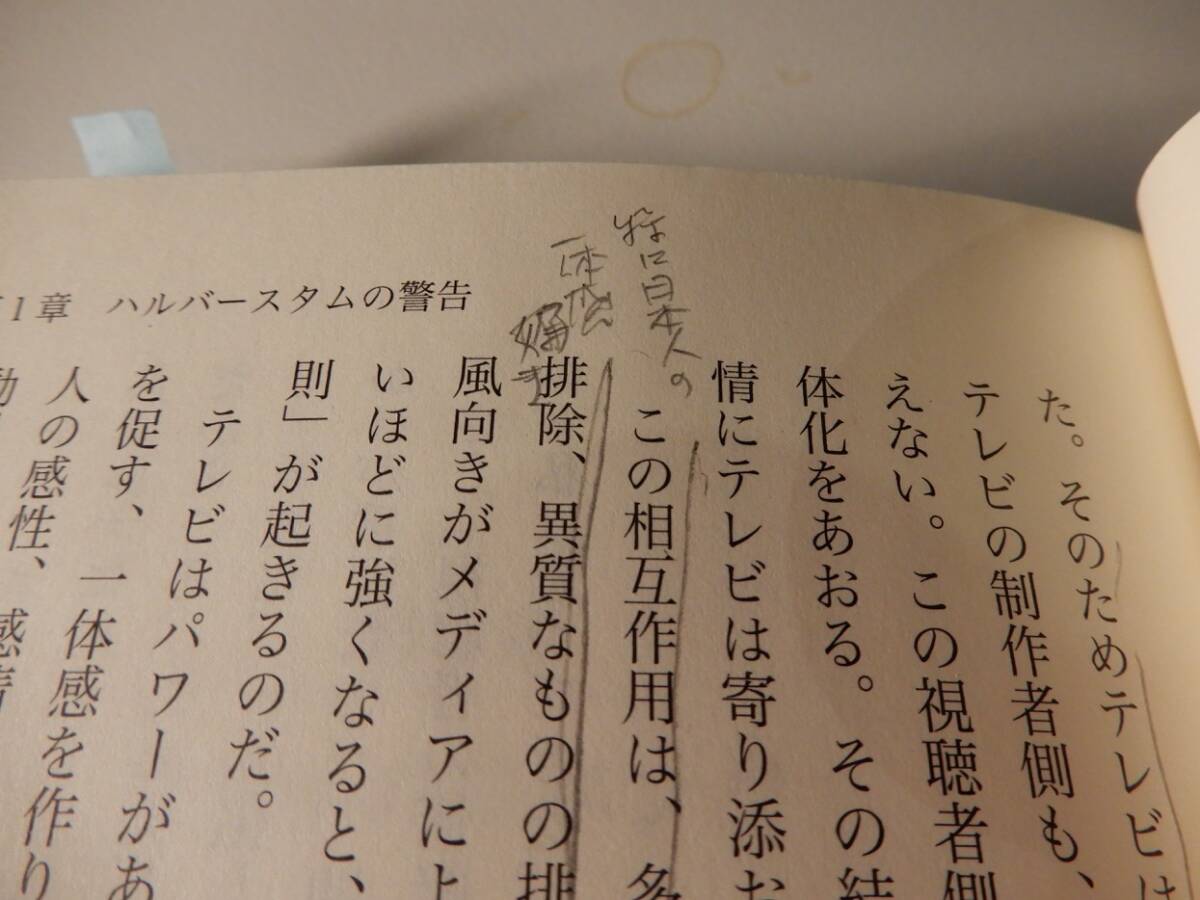 第1章 ハルバースタムの警告
特に日本人の
一体感
好き
た。そのためテレビは
テレビの制作者側も、
えない。この視聴者側
体化をあおる。その結
情にテレビは寄り添お
この相互作用は、多
排除、異質なものの排
風向きがメディアによ
いほどに強くなると、
則」が起きるのだ。
テレビはパワーがあ
を促す、一体感を作り
人の感性、感情